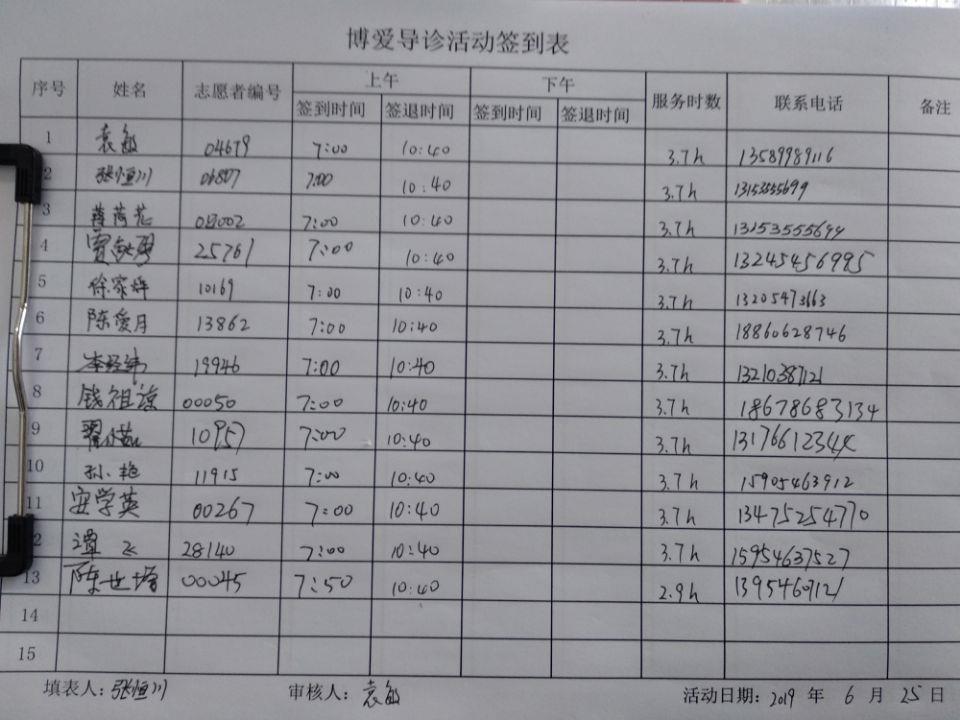 博爱导诊活动签到表
序号 姓名 志愿者编号 上午 下午 服务时数 联系电话 备注
签到时间 签退时间 签到时间 签退时间
1 袁敏 04679 7:00 10:40 3.7h 13589989116
2 张恒川 7:00 10:40 3.7h
3 7:00 10:40 3.7h
4 25761 7:00 10:40 3.7h 13245456995
5 10169 7:00 10:40 3.7h 13205473663
6 陈爱月 13862 7:00 10:40 3.7h 18860628746
7 李经纬 19946 7:00 10:40 3.7h
8 钱祖谅 00050 7:00 10:40 3.7h 18678683134
9 10957 7:00 10:40 3.7h 13176612344
10 孙艳 11915 7:00 10:40 3.7h 15905463912
11 安学英 00267 7:00 10:40 3.7h 13475254770
12 谭飞 28140 7:00 10:40 3.7h 15954637527
13 00045 7:50 10:40 2.9h
14
15
填表人:张恒川 审核人:袁敏 活动日期:2019 年 6 月 25 日